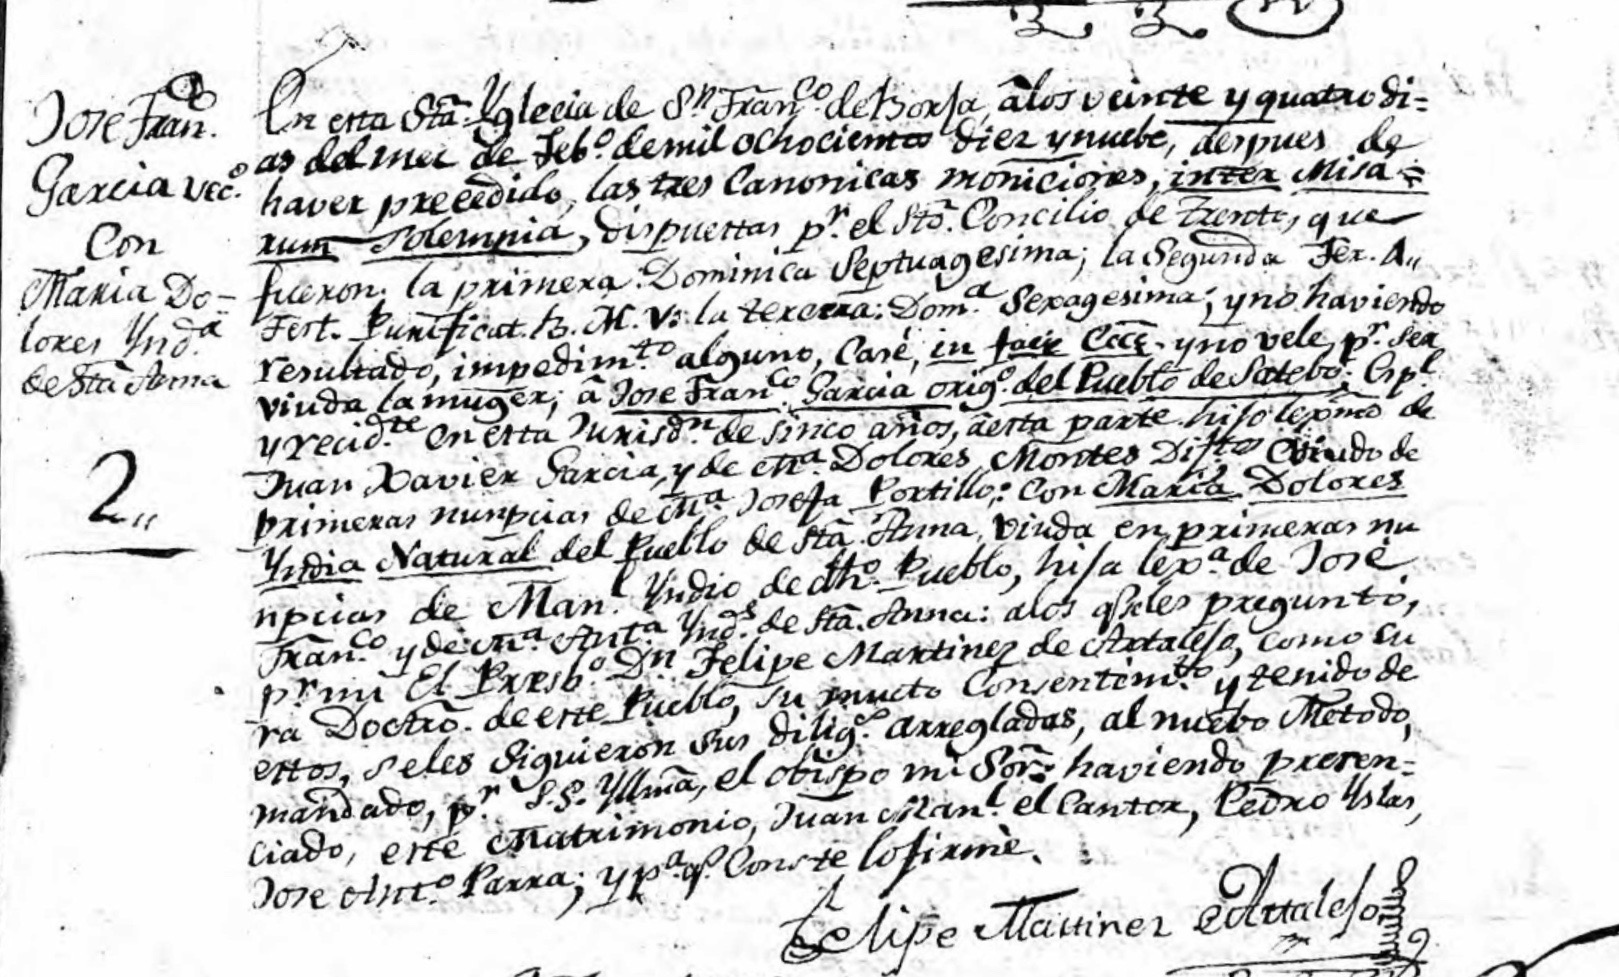 Jose Fran.co
Garcia vec.o
Con
Maria Do-
lores Ynd.a
de Sta Anna
2,,
En esta Sta. Yglecia de Sn. Fran.co de Borja, â los veinte y quatro di=
as del mes de Feb.o de mil ochocientos diez y nuebe, despues de
haver precedido, las tres Canonicas moniciones, inter Misa=
rum Solempnia, dispuestas p.r el Sto. Concilio de Trento, que
fueron. la primera: Dominica Septuagesima; la Segunda Fer. A,,
Fest. Purificat. B. M. V: la tercera: Dom.a Sexagesima; y no haviendo
resultado, impedim.to alguno, Casé, in facie Ecce. y no vele, p.r ser
viuda la muger; â Jose Fran.co Garcia orig.o del Pueblo de Satebo; Esp.l
y recid.te en esta Jurisd.n de sinco años, â esta parte hijo lexmo de
Juan Xavier Garcia, y de Ma. Dolores Montes Diftos Viudo de
primeras nunpcias de Ma. Josefa Portillo; Con Maria Dolores
Yndia Natural del Pueblo de Sta Anna, viuda en primeras nu
npcias de Man.l Yndio de dho. Pueblo, hija lex.a de José
Fran.co y de Ma. Ant.a Ynd.s de Sta. Anna: a los qe. les preguntó,
p.r mi El Presb.o Dn Felipe Martinez de Artalejo, como su
ra Doctro. de este Pueblo, su mucto Consentim.to y tenido de
estos, se les siguieron sus dilig.s arregladas, al nuebo Metodo,
mandado, p.r S. S. Yllma, el obispo mi Sor: haviendo presen=
ciado, este Matrimonio, Juan Man.l el Cantor, Pedro Yslas,
Jose Ant.o Parra; y p.a q.e Conste lo firmè.
Felipe Martinez de Artalejo